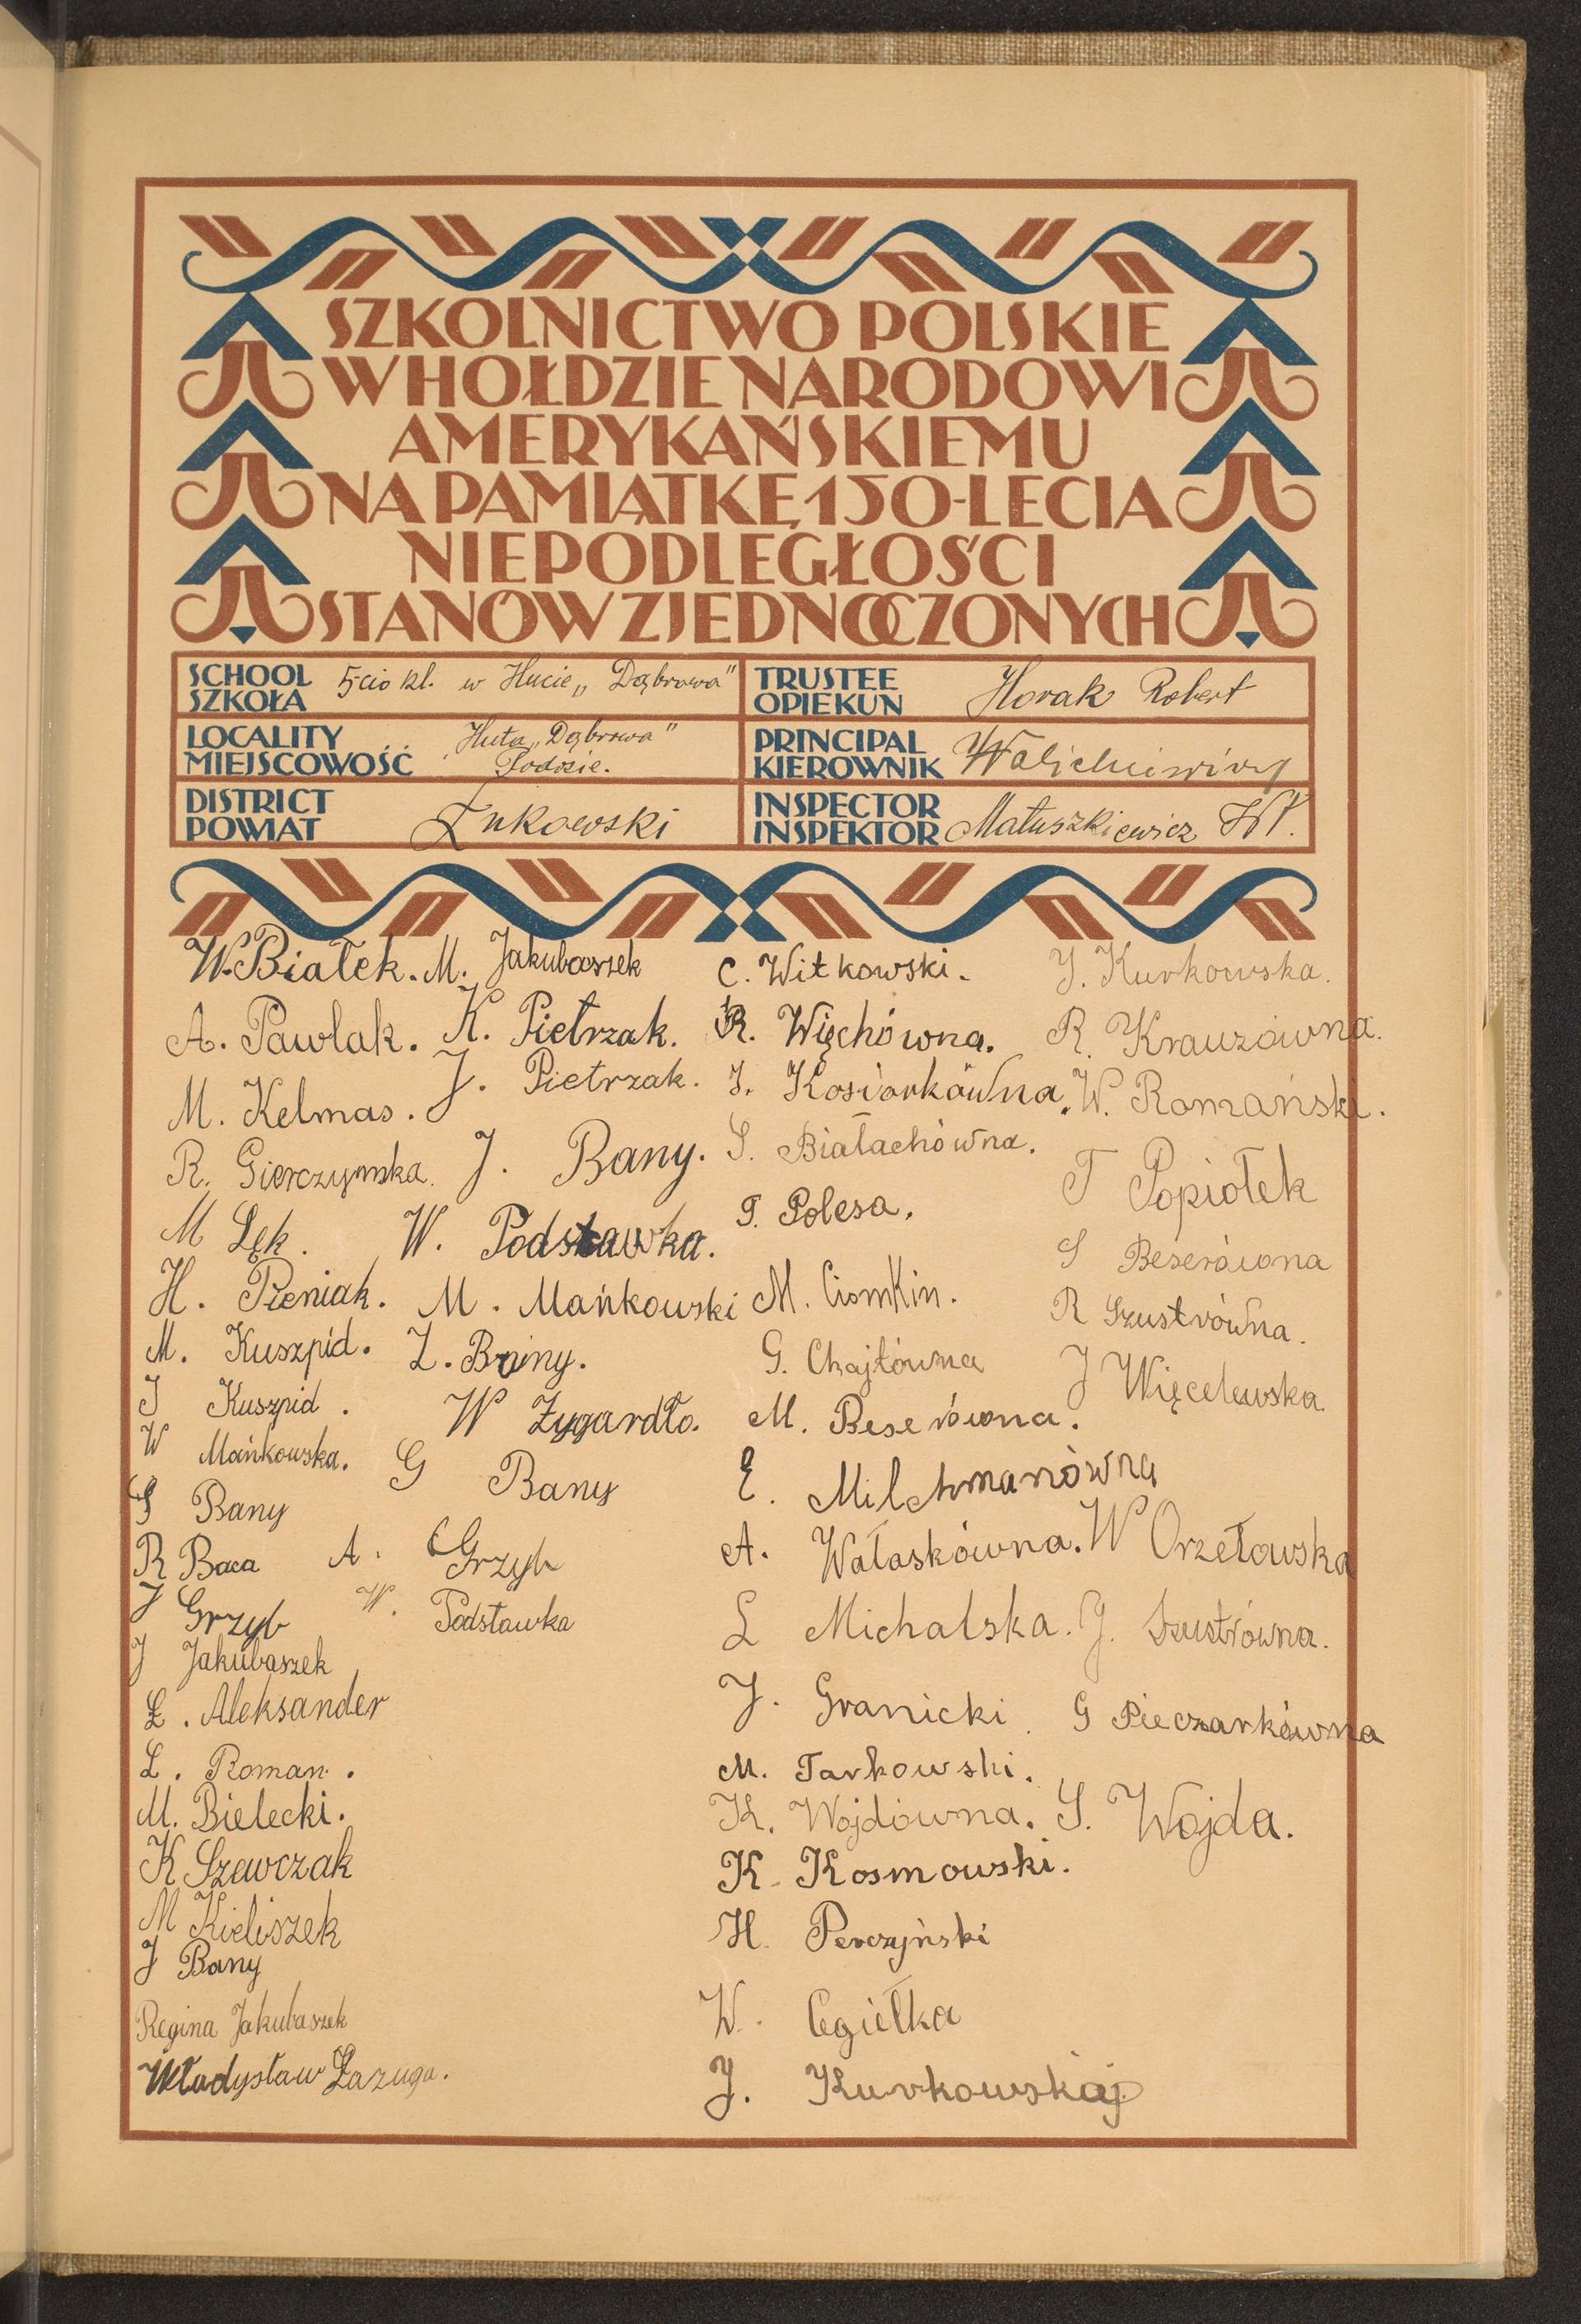 SZKOLNICTWO POLSKIE
W HOŁDZIE NARODOWI
AMERYKAŃSKIEMU
NA PAMIĄTKĘ 150-LECIA
NIEPODLEGŁOŚCI
STANÓW ZJEDNOCZONYCH
SCHOOL
SZKOŁA
5-cio kl. w Hucie „Dąbrowa"
TRUSTEE
OPIEKUN
Horak Robert
LOCALITY
MIEJSCOWOŚĆ
Huta „Dąbrowa"
PRINCIPAL
KIEROWNIK
DISTRICT
POWIAT
Łukowski
INSPECTOR
INSPEKTOR
Matuszkiewicz Wł.
W. Białek.
A. Pawlak.
M. Kelmas.
R. Gierczyńska.
M Lęk.
H. Pieniak.
M. Kuszpid.
J Kuszpid.
W Mańkowska.
S Bany
R Baca
J Grzyb
J Jakubaszek
Ł. Aleksander
L. Roman.
M. Bielecki.
K Szewczak
M Kieliszek
J Bany
Regina Jakubaszek
Władysław Łazuga.
M. Jakubaszek
K. Pietrzak.
J. Pietrzak.
J. Bany.
W. Podstawka.
M. Mańkowski
Z. Bany.
W Żygardło.
G Bany
A. Grzyb
W. Podstawka
C. Witkowski.
R. Więchówna.
J. Kosiorkówna.
S. Białachówna.
T. Polesa.
M. Ciomkin.
G. Chajtówna
M. Beserówna.
E. Milchmanówna
A. Wałaskówna.
L Michalska.
J. Granicki.
M. Tarkowski.
K. Wojdówna.
K. Kosmowski.
H. Perczyński
W. Cegiełka
J. Kurkowskaj
J. Kurkowska.
R. Krauzówna.
W. Romański.
T Popiołek
S Beserówna
R Szustrówna.
J Więcelewska.
W Orzełowska
J. Szustrówna.
G Pieczarkówna
S. Wojda.